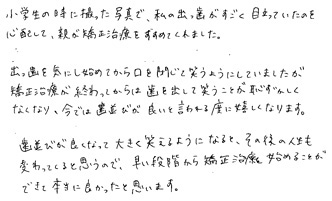 小学生の時に撮った写真で、私の出っ歯がすごく目立っていたのを
心配して、親が矯正治療をすすめてくれました。
出っ歯を気にし始めてから口を閉じて笑うようにしていましたが
矯正治療が終わってからは歯を出して笑うことが恥ずかしく
なくなり、今では歯並びが良いと言われる度に嬉しくなります。
歯並びが良くなって大きく笑えるようになると、その後の人生も
変わってくると思うので、早い段階から矯正治療を始めることが
できて本当に良かったと思います。